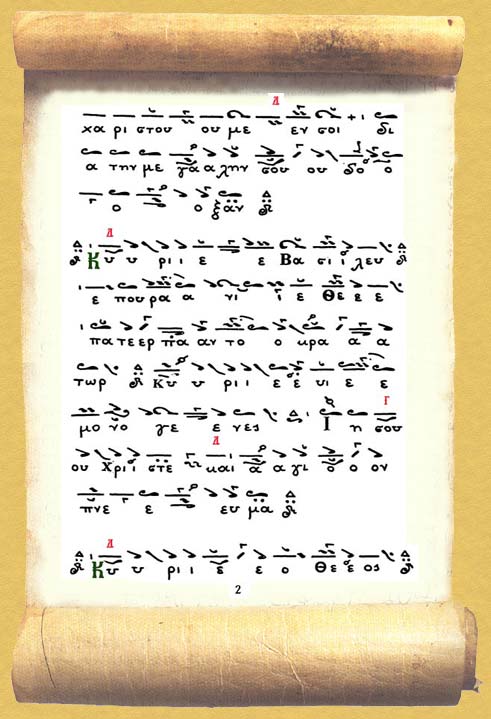 Δ
χα ρι στου ου με εν σοι δι
α την με γα α λην σου ου δο ο
ο ο ξαν
Δ
Κυ υ ρι ι ε ε Βα σι ι λευ
ε που ρα α νι ι ε Θε ε ε
πα τε ερ πα αν το ο κρα α α
τωρ Κυ υ ρι ι ε ε υι ε ε
Γ
μο νο γε ε νες Ι η σου
Δ
ου Χρι ι στε και α α γι ο ο ον
πνε ε ευ μα
Δ
Κυ υ ρι ι ε ε ο Θε ε ος
2